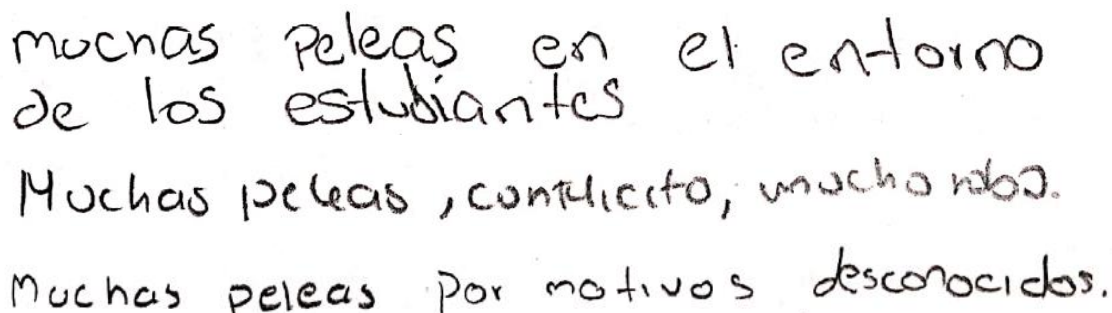 muchas Peleas en el entorno
de los estubiantes
Muchas peleas, conflicto, mucho robo.
Muchas peleas por motivos desconocidos.